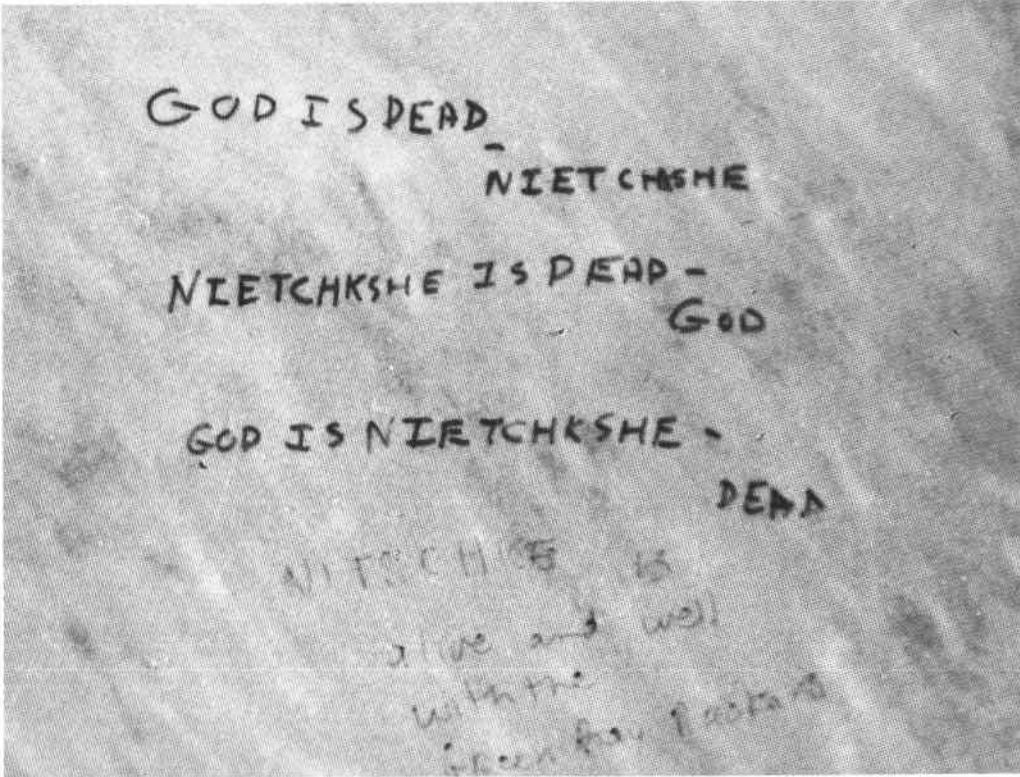 GOD IS DEAD
- NIETCHKSHE
NIETCHKSHE IS DEAD -
GOD
GOD IS NIETCHKSHE -
DEAD
is
alive and well
with the
Green Bay Packers